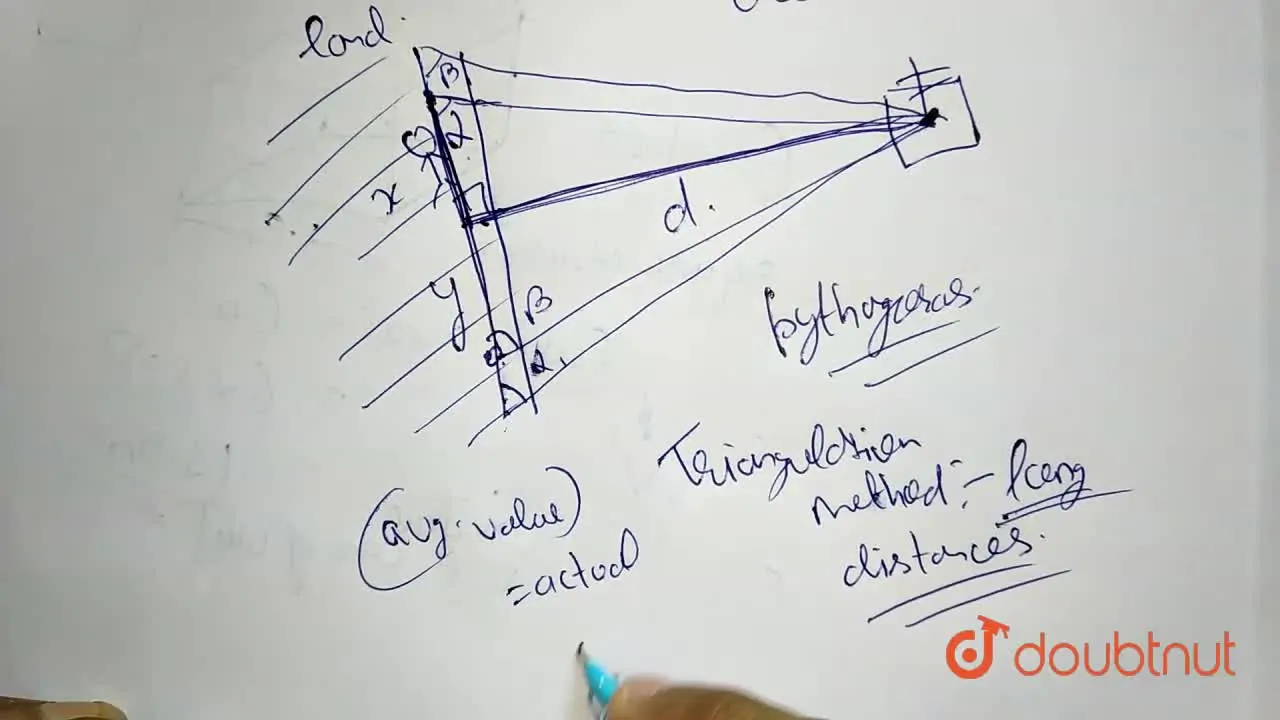 land.
β
α
x
d.
y
β
α.
pythagoras.
Triangulation
method:- long
distances.
(avg. value)
= actual
doubtnut